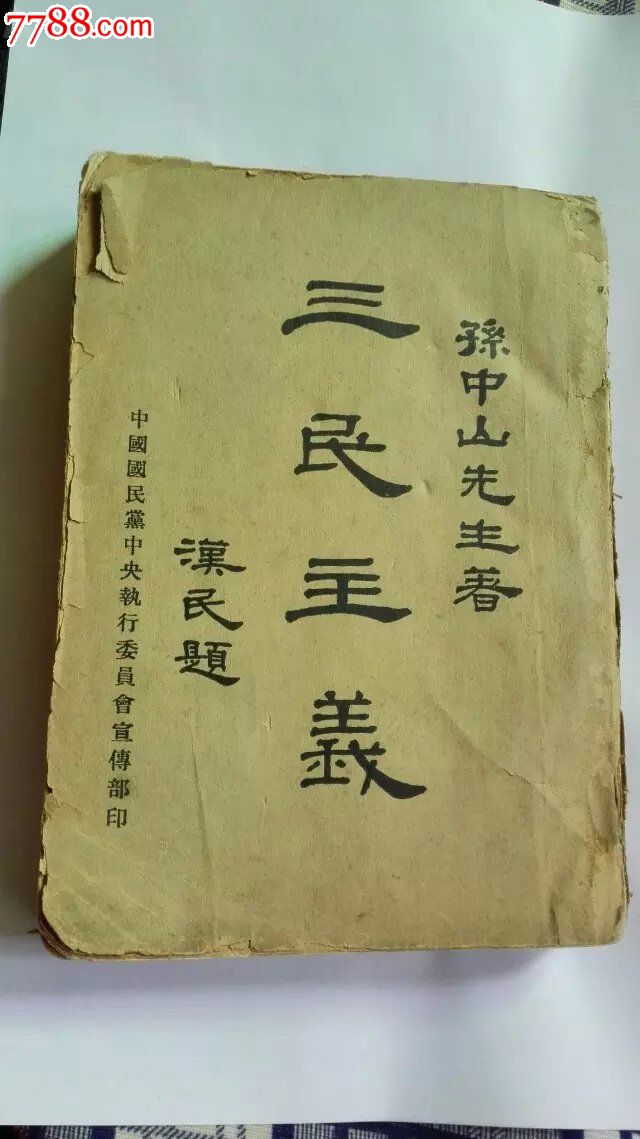 7788.com
孫中山先生著
三民主義
漢民題
中國國民黨中央執行委員會宣傳部印